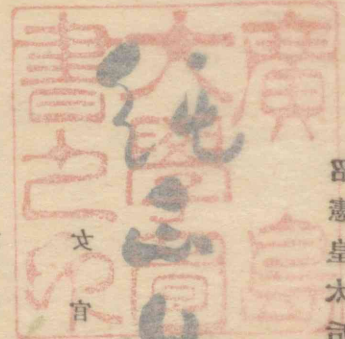 廣島
大學圖
書之印
昭憲皇太后
女官